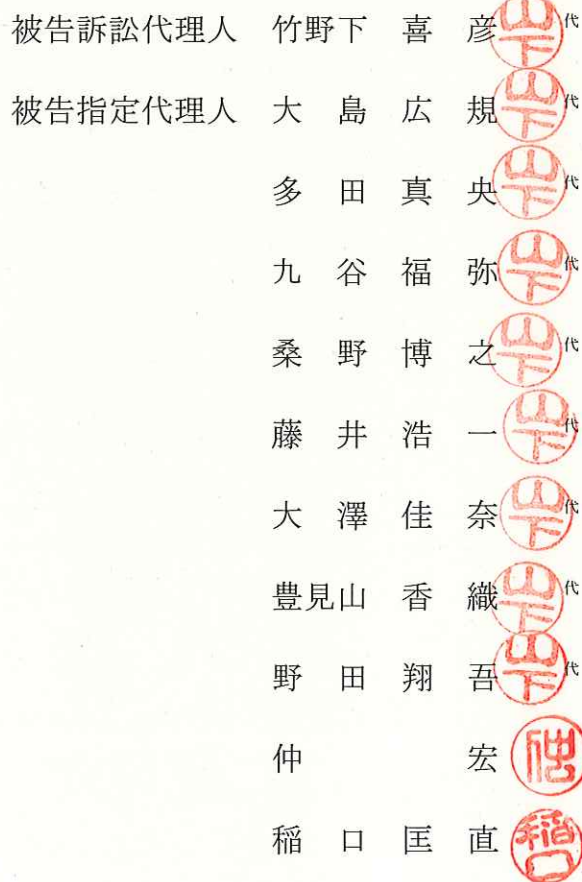 被告訴訟代理人 竹野下 喜 彦 山下 代
被告指定代理人 大 島 広 規 山下 代
多 田 真 央 山下 代
九 谷 福 弥 山下 代
桑 野 博 之 山下 代
藤 井 浩 一 山下 代
大 澤 佳 奈 山下 代
豊見山 香 織 山下 代
野 田 翔 吾 山下 代
仲 宏 仲
稲 口 匡 直 稲口